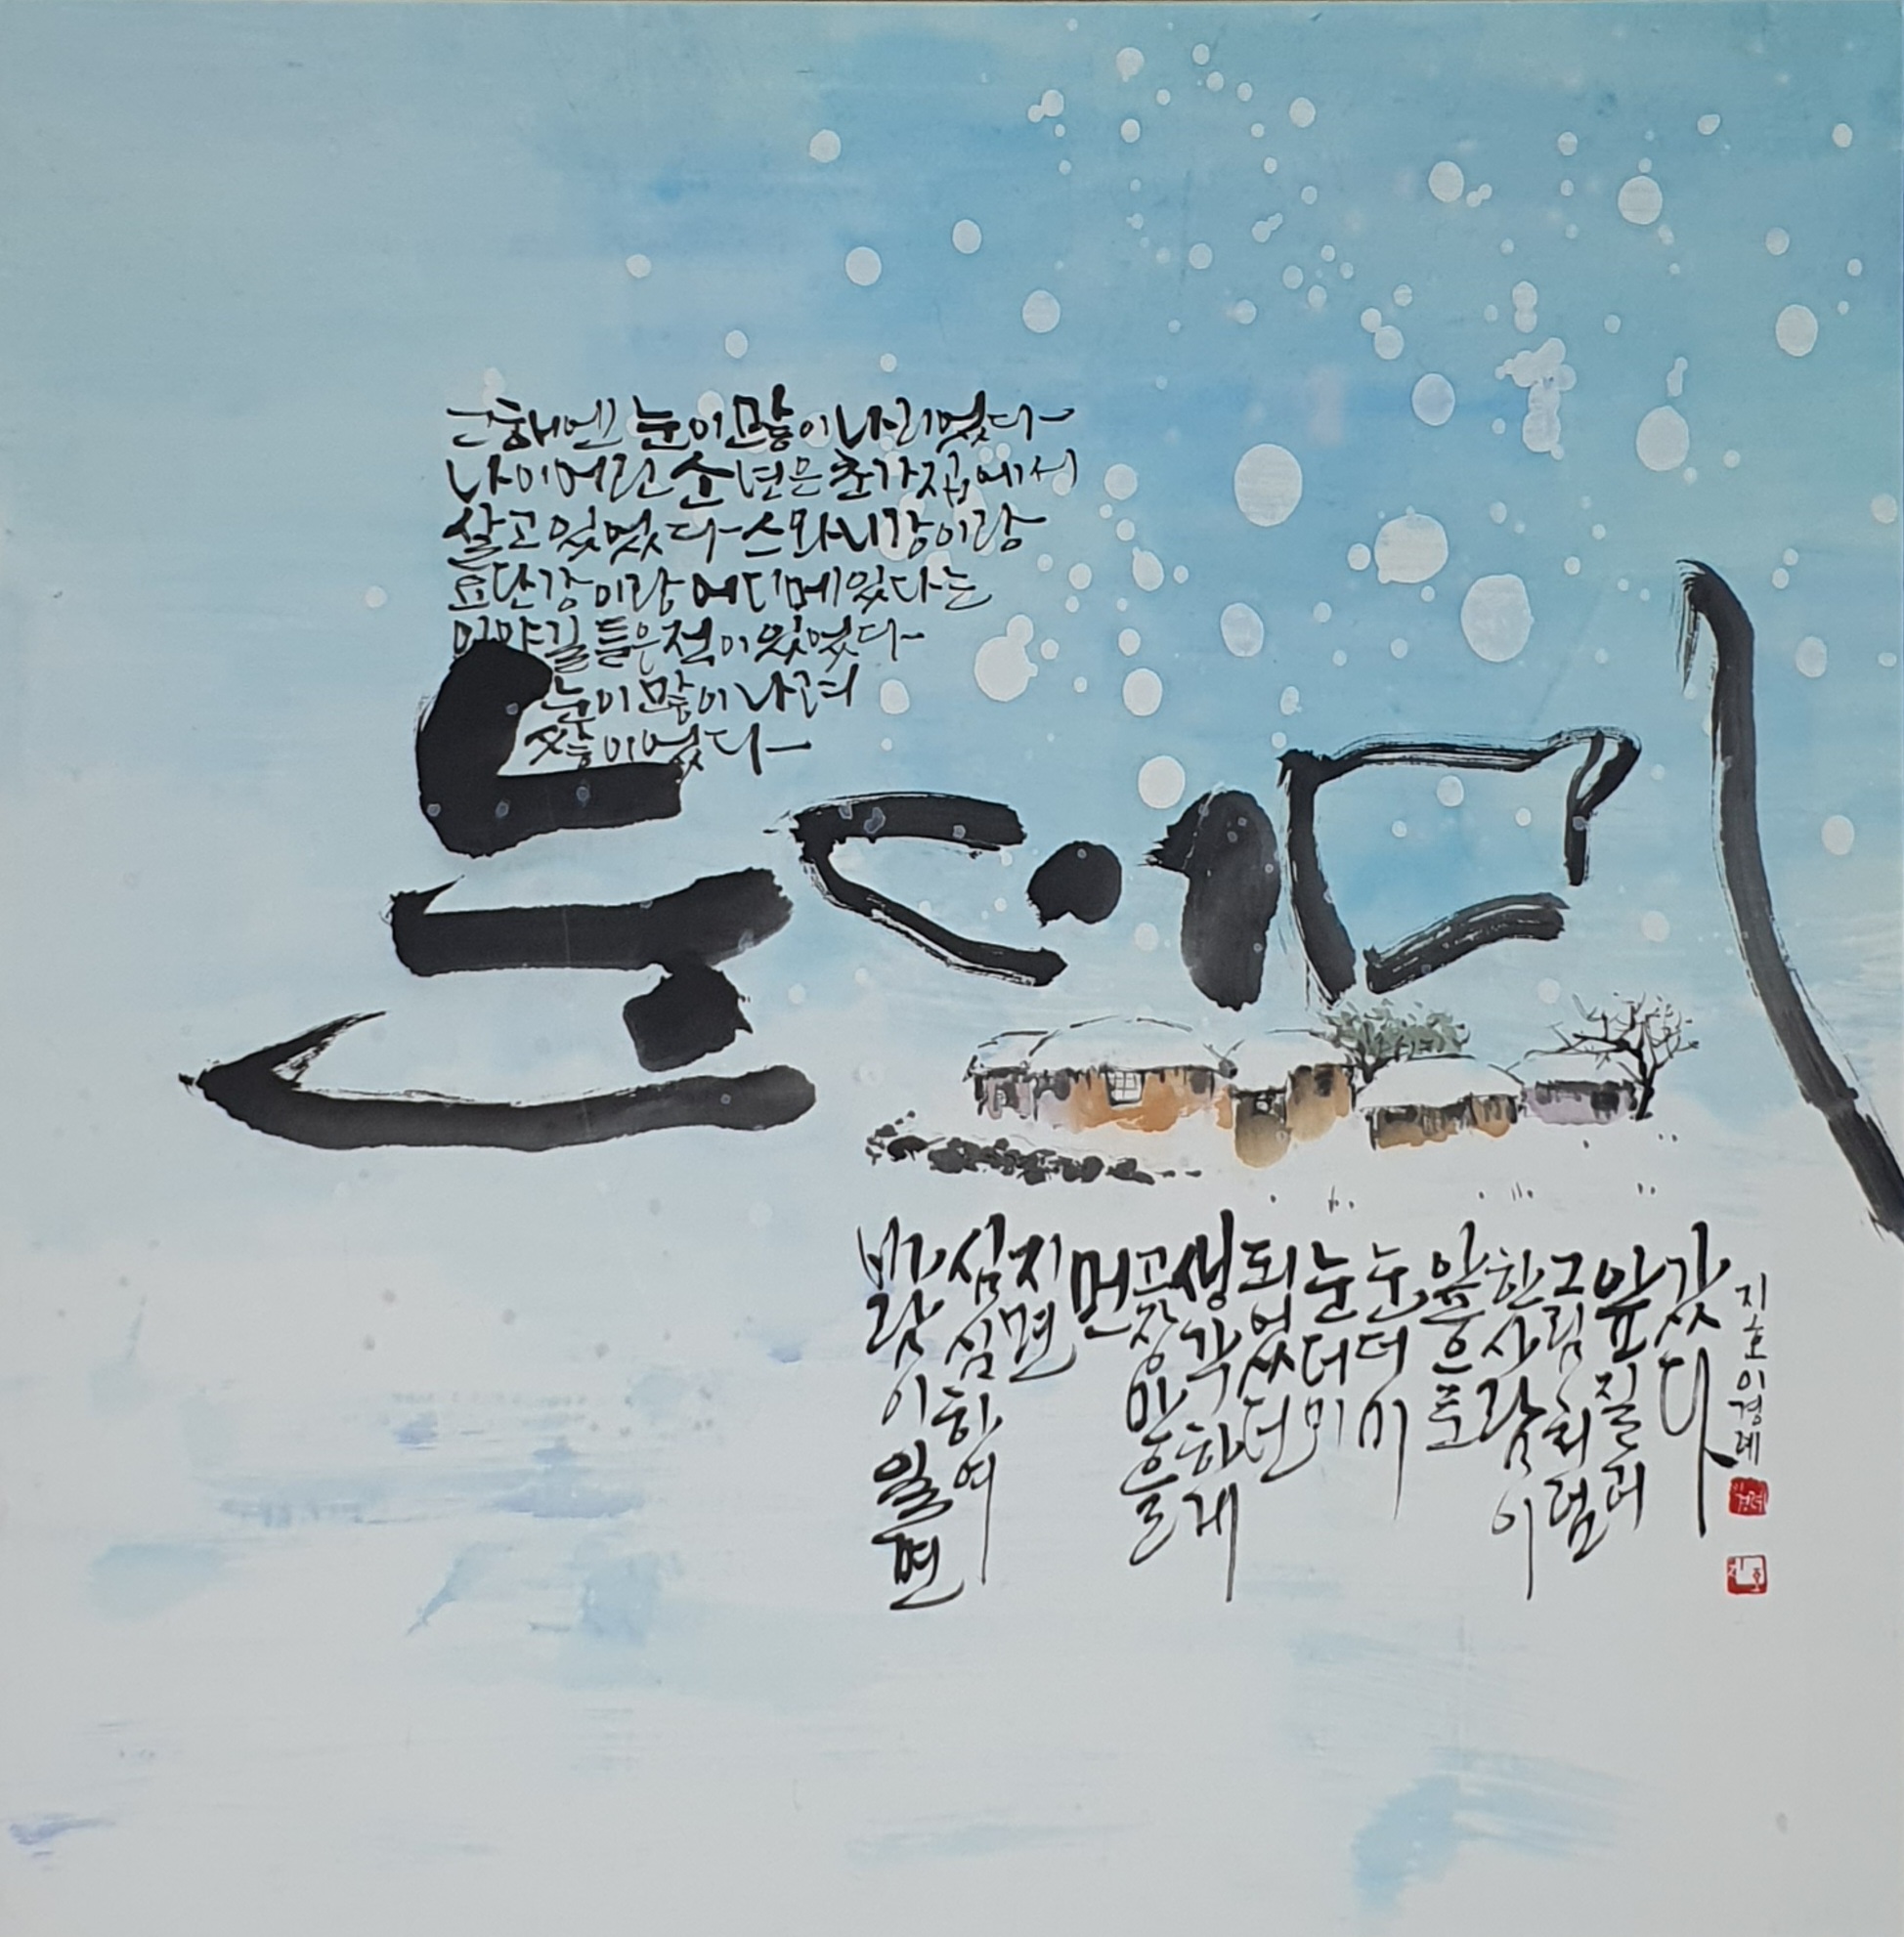 그해엔 눈이 많이 나리었다
나이 어린 소년은 초가집에서
살고 있었다 스와니강이랑
요단강이랑 어디메 있다는
이야길 들은 적이 있었다
눈이 많이 나려
쌓이었다
눈더미
바람이 일면
심심하여
지면
먼
고장만을
생각하게
되었던
눈더미
눈더미
앞으로
한 사람이
그림처럼
앞질러
갔다
지호 이경례